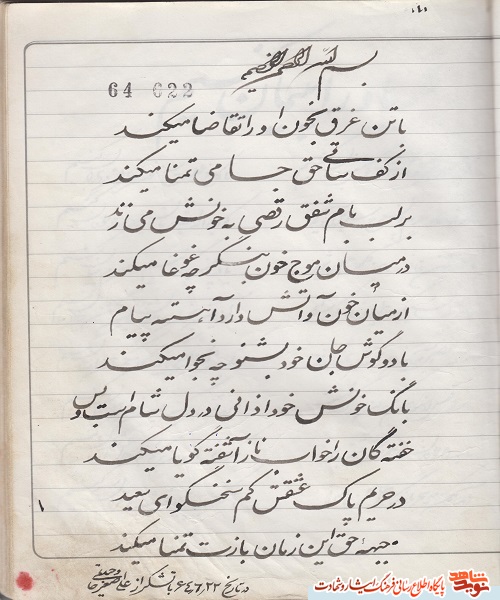 بسم الله الرحمن الرحیم
64 622
با تن غرق بخون او را تقاضا میکند
از کف ساقی حق جامی تمنا میکند
بر لب بام شفق رقصی به خونش می زند
در میان موج خون بنگر چه غوغا میکند
از میان خون و آتش دارد آهسته پیام
با دو گوش جان خود بشنو چه نجوا میکند
بانگ خونش خود اذانی در دل شام است و بس
خفته گان را خواب ناز آشفته گویا میکند
در حریم پاک عشقش کم سخنگو ای سعید
وجیهٔ حق این زبان بازت تمنا میکند
۱
در تاریخ ۶۴،۶،۲۲ با تشکر از
نوید شاهد
پایگاه اطلاع رسانی فرهنگ ایثار و شهادت